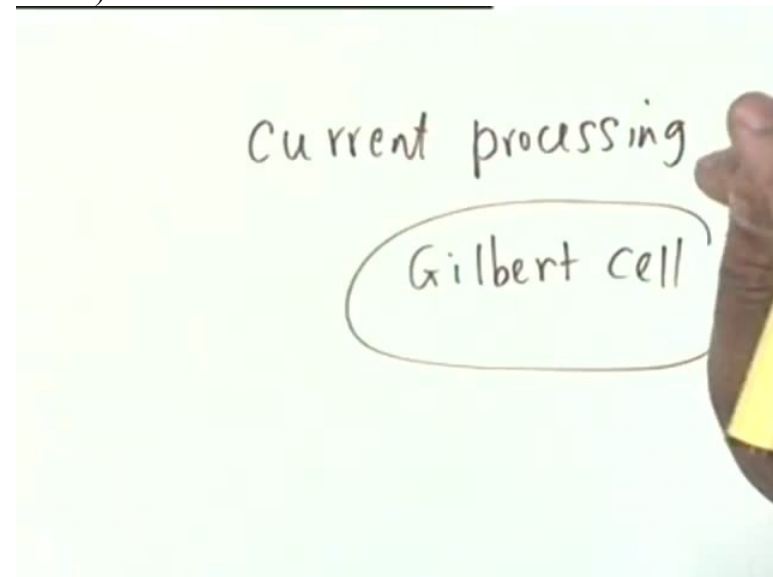 Current processing
Gilbert cell